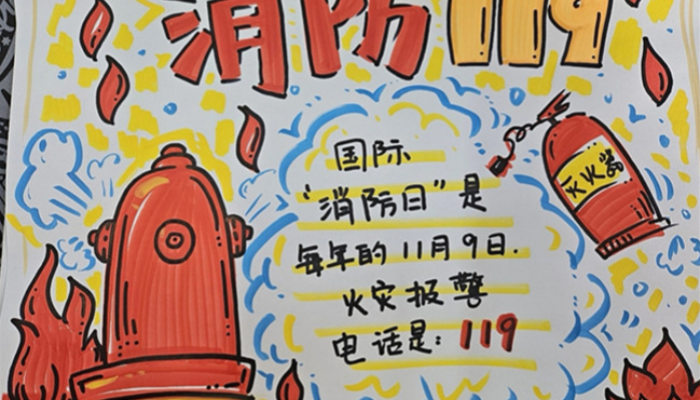 消防119
国际
“消防日”是
每年的11月9日.
火灾报警
电话是：119
灭火器